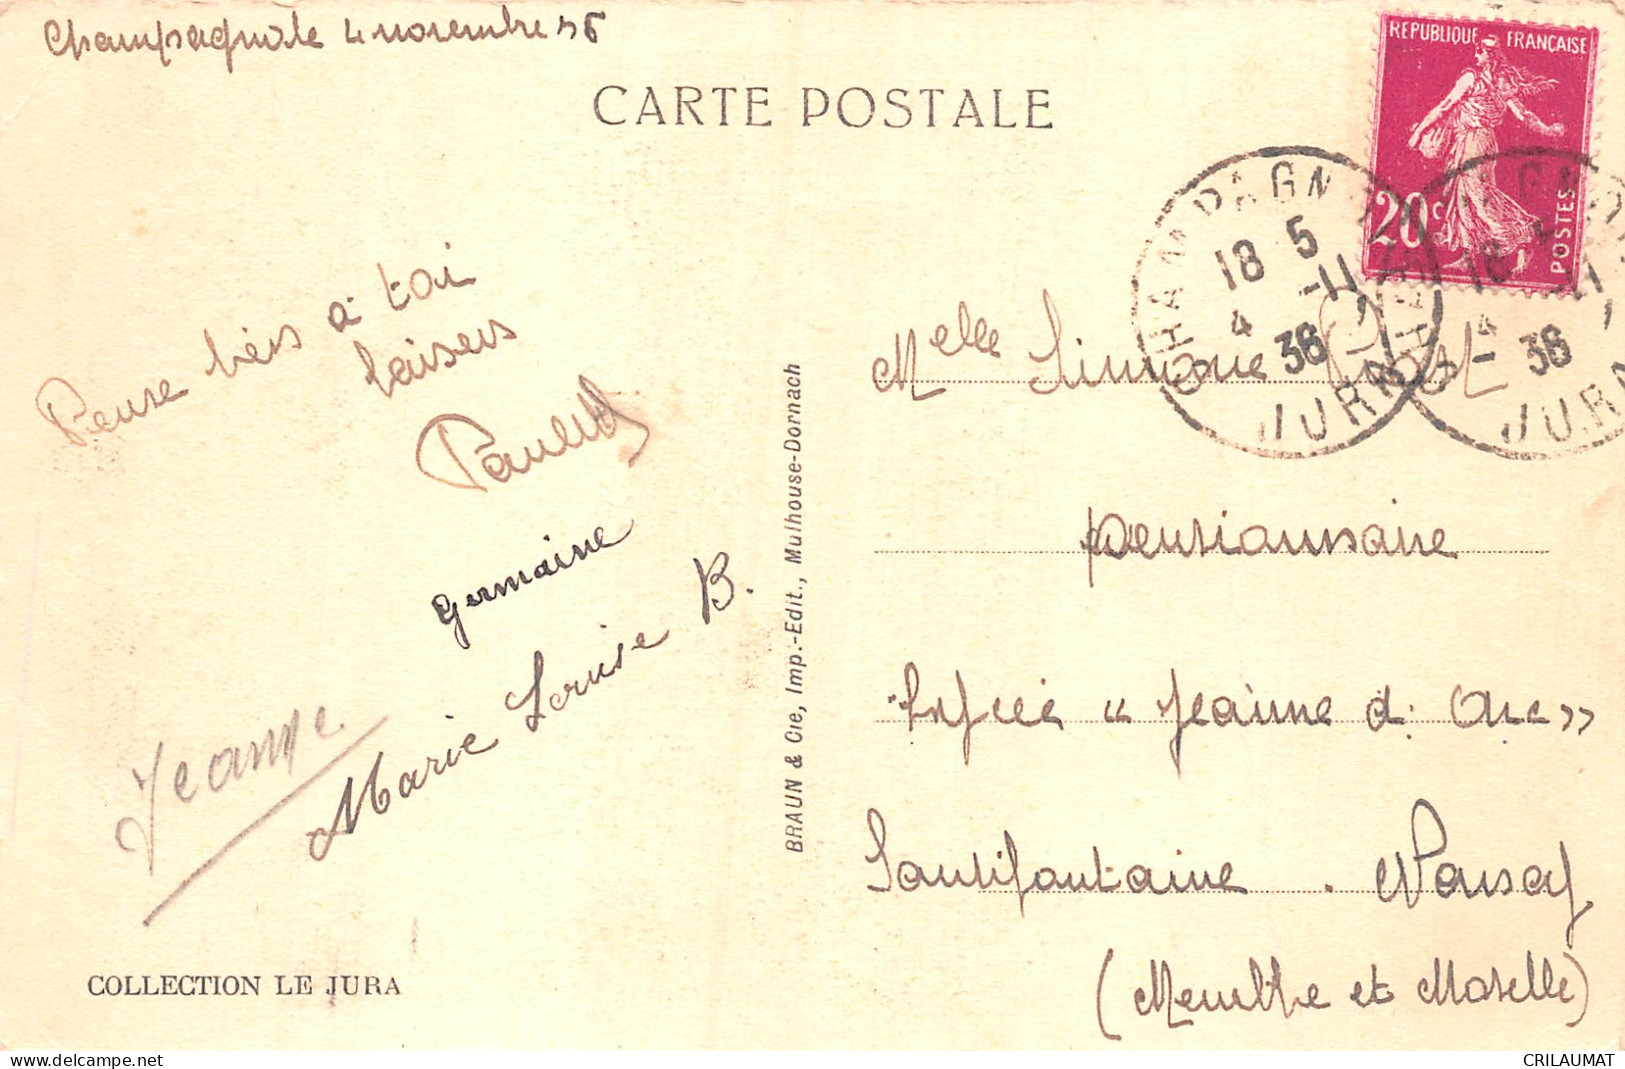 Champagnole 4 novembre 36
CARTE POSTALE
REPUBLIQUE FRANÇAISE
20c
POSTES
CHAMPAGNOLE
18 5
4 -11
36
JURA
18 5
4 -11
36
JURA
Pense bien à toi
baisers
Paulette
Germaine
Marie Louise B.
Jeanne
COLLECTION LE JURA
BRAUN & Cie, Imp.-Edit., Mulhouse-Dornach
Melle Simone
pensionnaire
Lycée "Jeanne d'Arc"
Santifontaine . Nancy
(Meurthe et Moselle)
delcampe.net
CRILAUMAT